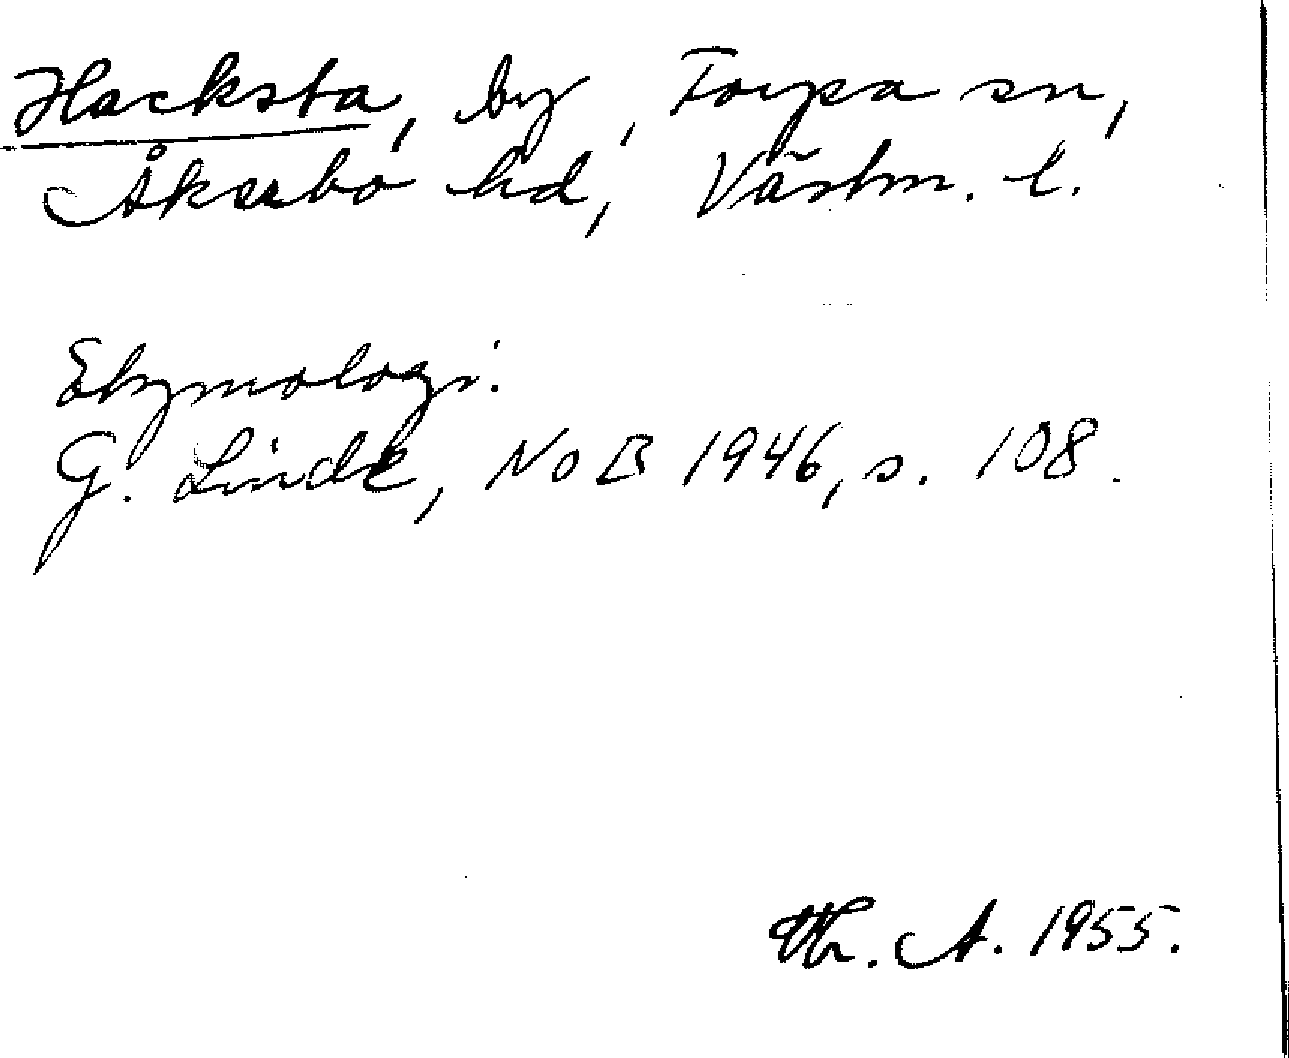 Hacksta, by, Torpa sn,
Åkerbo hd, Västm. l.
Etymologi:
G. Linde, NoB 1946, s. 108.
Th. A. 1955.